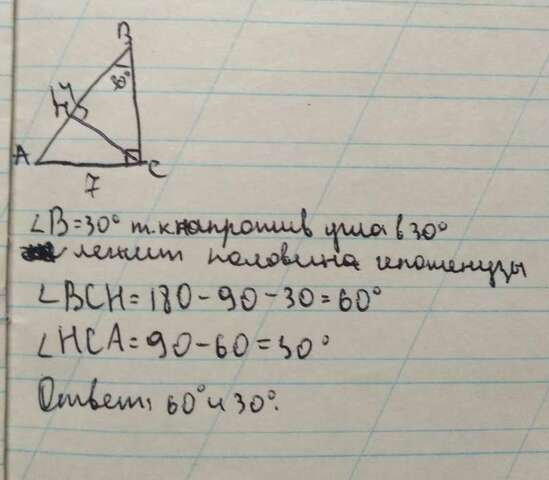 B
30°
H
A
C
7
∠B=30° т.к напротив угла в 30°
лежит половина гипотенузы
∠BCH=180-90-30=60°
∠HCA=90-60=30°
Ответ: 60° и 30°.